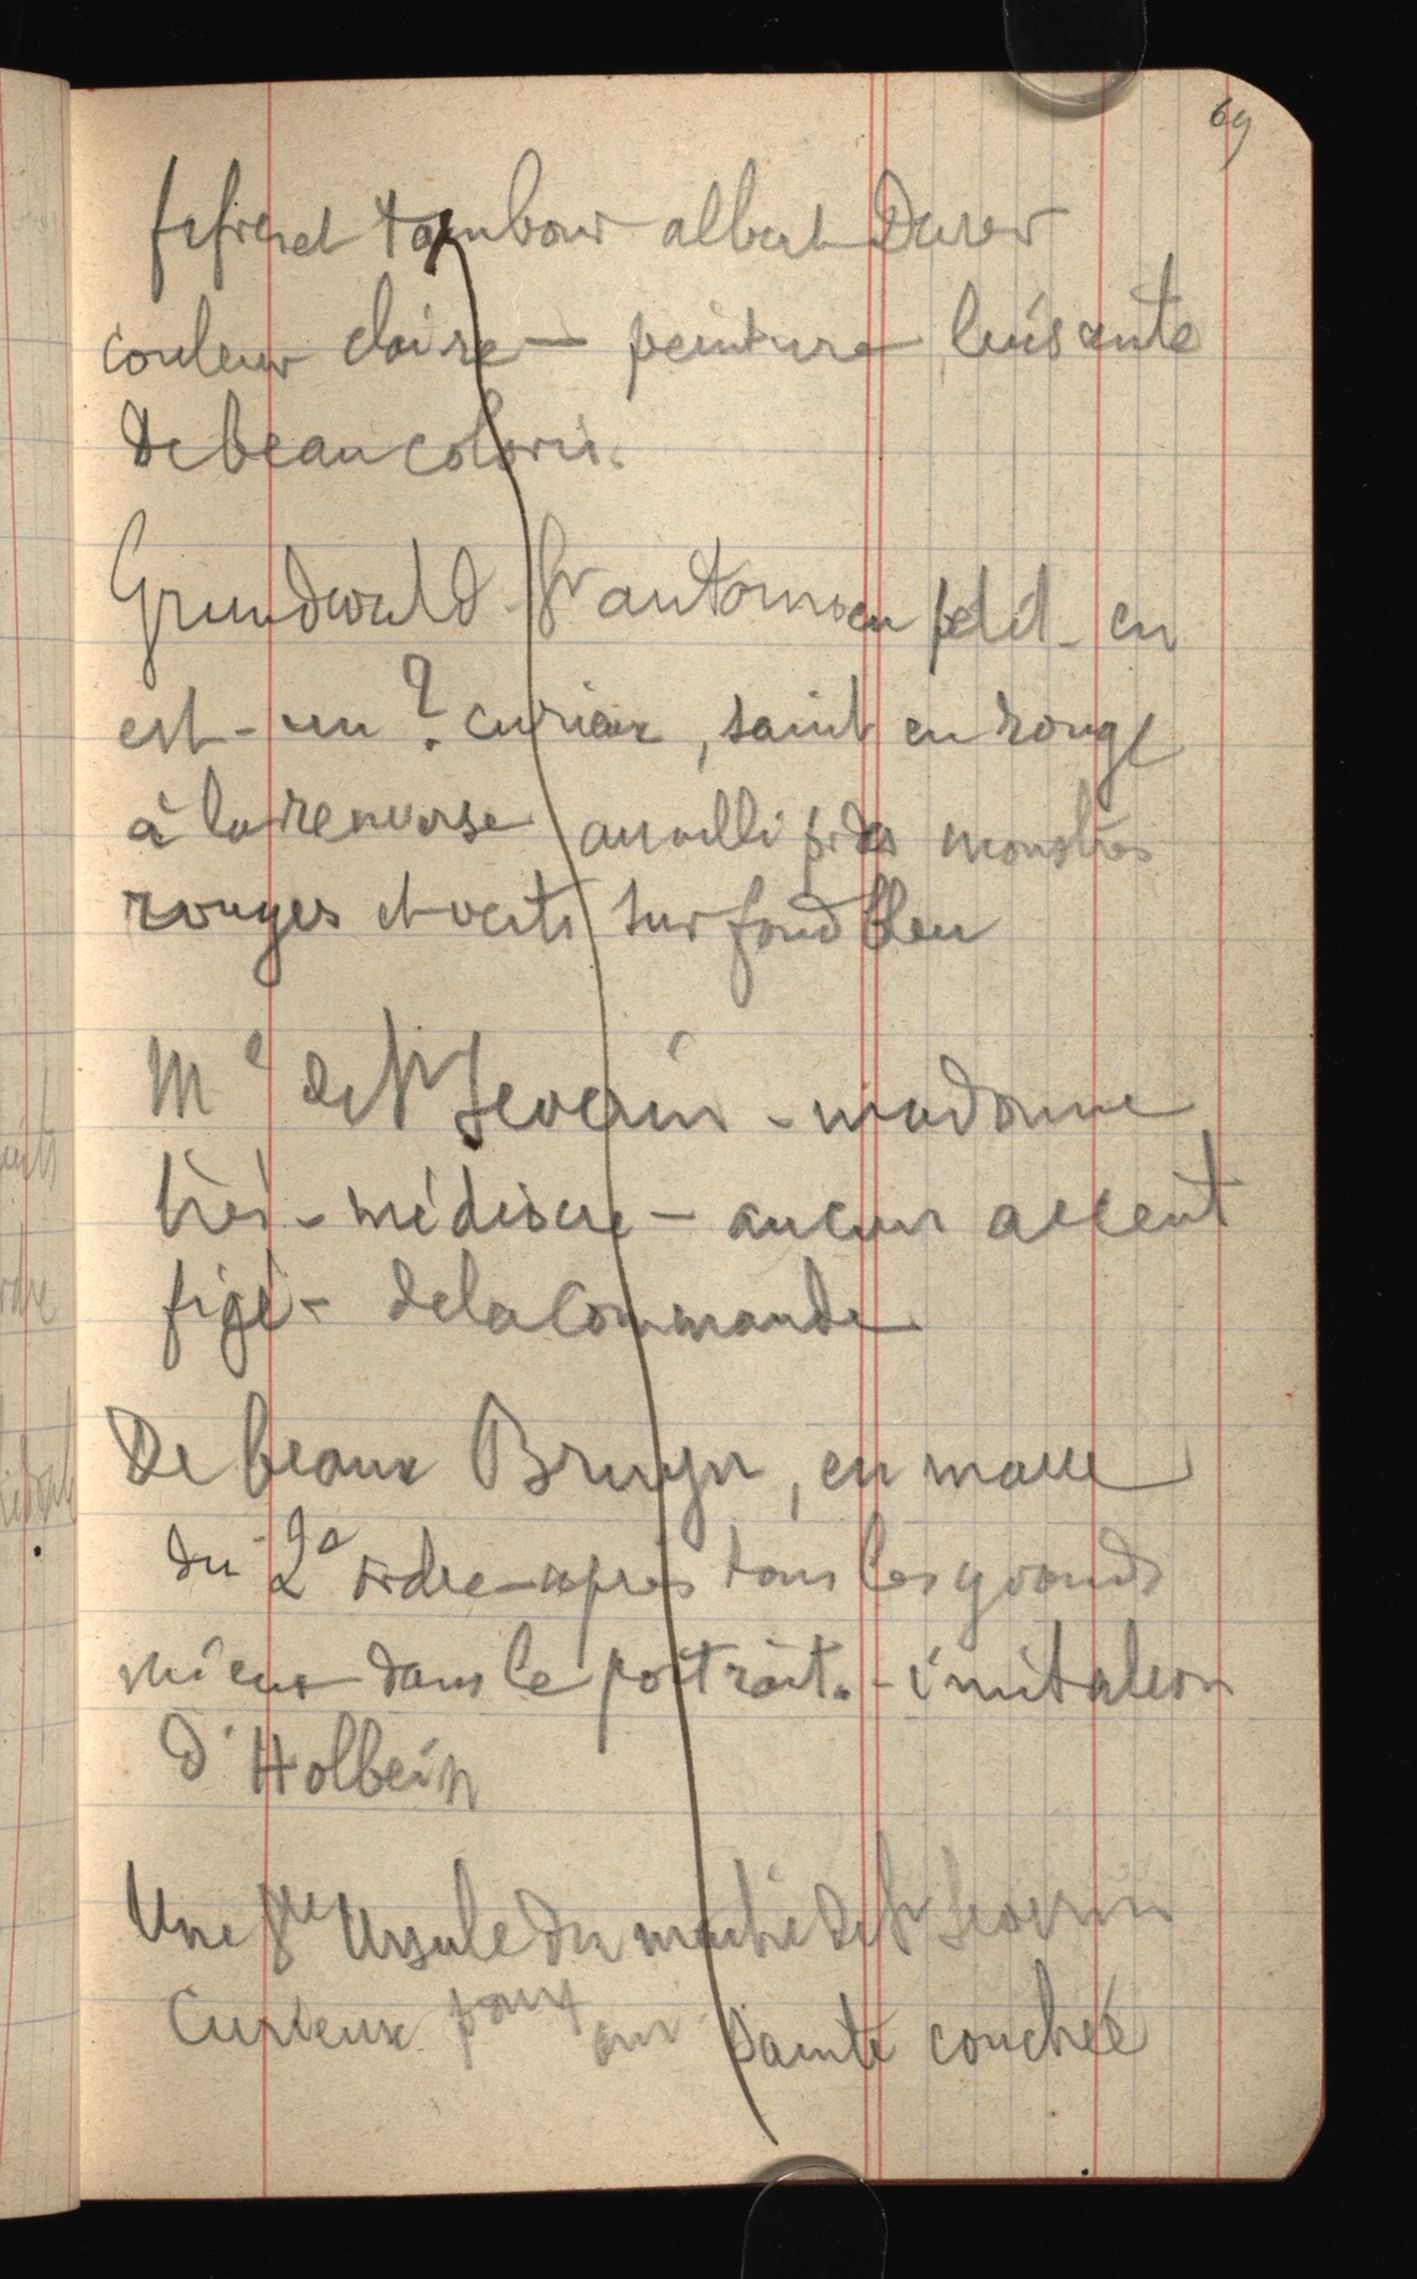 69
fifre et tambour albert Durer
couleur claire — peinture luisante
de beau coloris.
Grundwald. St antoine en petit - en
est-un ? curieux, saint en rouge
à la renverse assailli pr des monstres
rouges et verts sur fond bleu
Me de St Severin - madone
très - médiocre - aucun accent
figé - de la commande
De beaux Bruyn, en masse
du 2e ordre - après tous les grands
mieux dans le portrait. - imitation
d'Holbein
Une Ste Ursule du maître de St Severin
Curieux sainte couchée